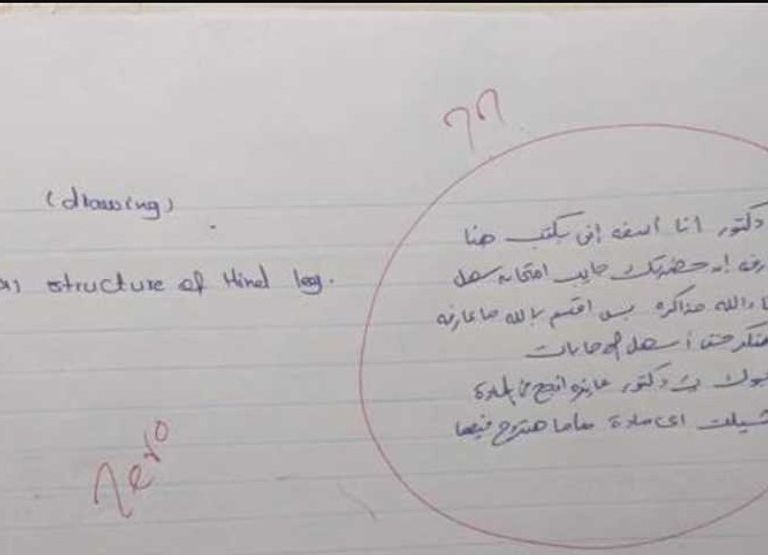 (drawing)
structure of Hind leg.
zero
دكتور انا اسفه إنى بكتب هنا
إن حضرتك جايب امتحان سهل
والله مذاكره بس اقسم بالله ما عارفه
أسهل اجابات
دكتور عايزه انجح في المادة
شيلت اى مادة ماما هتروح فيها